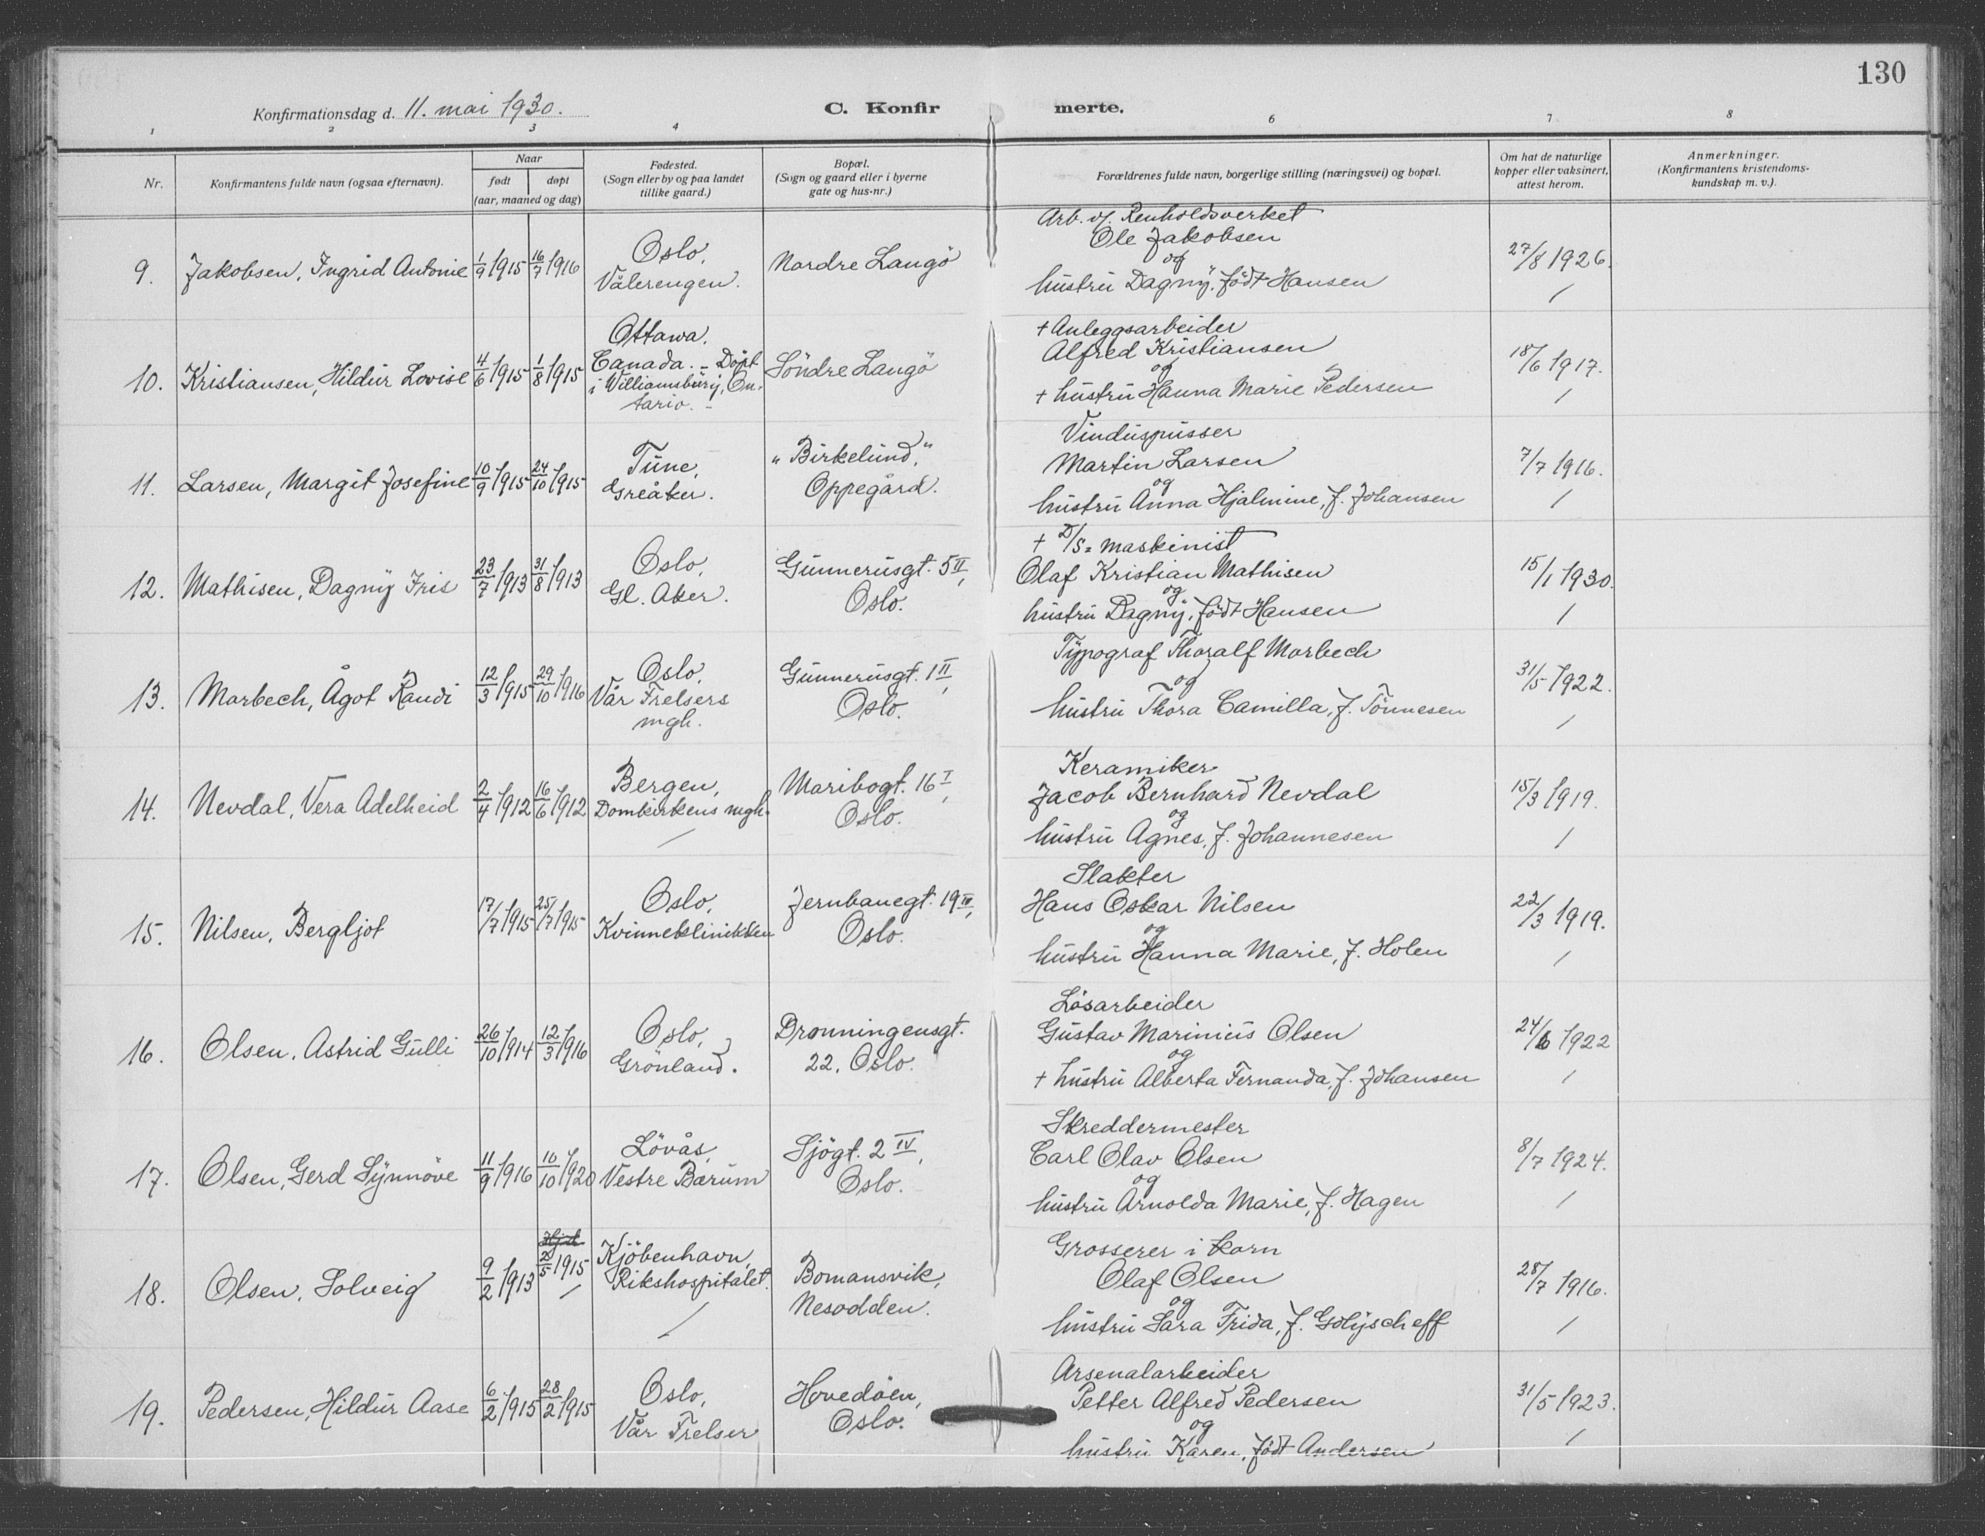 130
Konfirmationsdag d. 11. mai 1930.
C. Konfirmerte.
1 2 3 4 6 7 8
Nr.
Konfirmantens fulde navn (ogsaa efternavn).
Naar
født døpt
(aar, maaned og dag)
Fødested.
(Sogn eller by og paa landet
tillike gaard.)
Bopæl.
(Sogn og gaard eller i byerne
gate og hus-nr.)
Forældrenes fulde navn, borgerlige stilling (næringsvei) og bopæl.
Om hat de naturlige
kopper eller vaksinert,
attest herom.
Anmerkninger.
(Konfirmantens kristendoms-
kundskap m. v.).
9. Jakobsen, Ingrid Antonie 1/9 1915 16/7 1916
Oslo,
Vålerengen.
Nordre Langö
Arb. v/. Renholdsverket
Ole Jakobsen
og
hustru Dagny, født Hansen
27/8 1926.
10. Kristiansen, Hildur Lovise 4/6 1915 1/8 1915
Ottawa,
Canada. - Döpt
i Williamsburg, On-
tario. -
Söndre Langö
+ Anleggsarbeider
Alfred Kristiansen
og
+ hustru Hanna Marie Pedersen
18/6 1917.
11. Larsen, Margit Josefine 10/9 1915 24/10 1915
Tune,
Greåker.
"Birkelund,"
Oppegård.
Vinduspusser
Martin Larsen
og
hustru Anna Hjalmine, f. Johansen
7/7 1916.
12. Mathisen, Dagny Iris 23/7 1913 31/8 1913
Oslo,
Gl. Aker.
Gunnerusgt. 5 II,
Oslo.
+ D/S= maskinist
Olaf Kristian Mathisen
og
hustru Dagny, født Hansen
15/1 1930.
13. Morbech, Ågot Randi 12/3 1915 29/10 1916
Oslo,
Vår Frelsers
mgh.
Gunnerusgt. 1 II,
Oslo.
Typograf Thoralf Morbech
og
hustru Thora Camilla, f. Tönnesen
31/5 1922.
14. Nevdal, Vera Adelheid 2/4 1912 16/6 1912
Bergen,
Domkirkens mgh.
Maribogt. 16 I,
Oslo.
Keramiker
Jacob Bernhard Nevdal
og
hustru Agnes, f. Johannesen
15/3 1919.
15. Nilsen, Bergljot 17/7 1915 25/7 1915
Oslo,
Kvinneklinikken
Jernbanegt. 19 IV,
Oslo.
Slakter
Hans Oskar Nilsen
og
hustru Hanna Marie, f. Holen
22/3 1919.
16. Olsen, Astrid Gulli 26/10 1914 12/3 1916
Oslo,
Grönland.
Dronningensgt.
22, Oslo.
Løsarbeider
Gustav Marinius Olsen
og
+ hustru Alberta Fernanda, f. Johansen
24/6 1922
17. Olsen, Gerd Synnöve 11/9 1916 10/10 1920
Lövås,
Vestre Bærum
Sjögt. 2 IV,
Oslo.
Skreddermester
Carl Olav Olsen
og
hustru Arnolda Marie, f. Hagen
8/7 1924.
18. Olsen, Solveig 9/2 1913 2/5 1915
Kjöbenhavn,
Rikshospitalet.
Bomansvik,
Nesodden.
Grosserer i korn
Olaf Olsen
og
hustru Sara Frida, f. Golyscheff
28/7 1916.
19. Pedersen, Hildur Aase 6/2 1915 28/2 1915
Oslo,
Vår Frelser
Hovedöen,
Oslo.
Arsenalarbeider
Petter Alfred Pedersen
og
hustru Karen, født Andersen
31/5 1923.